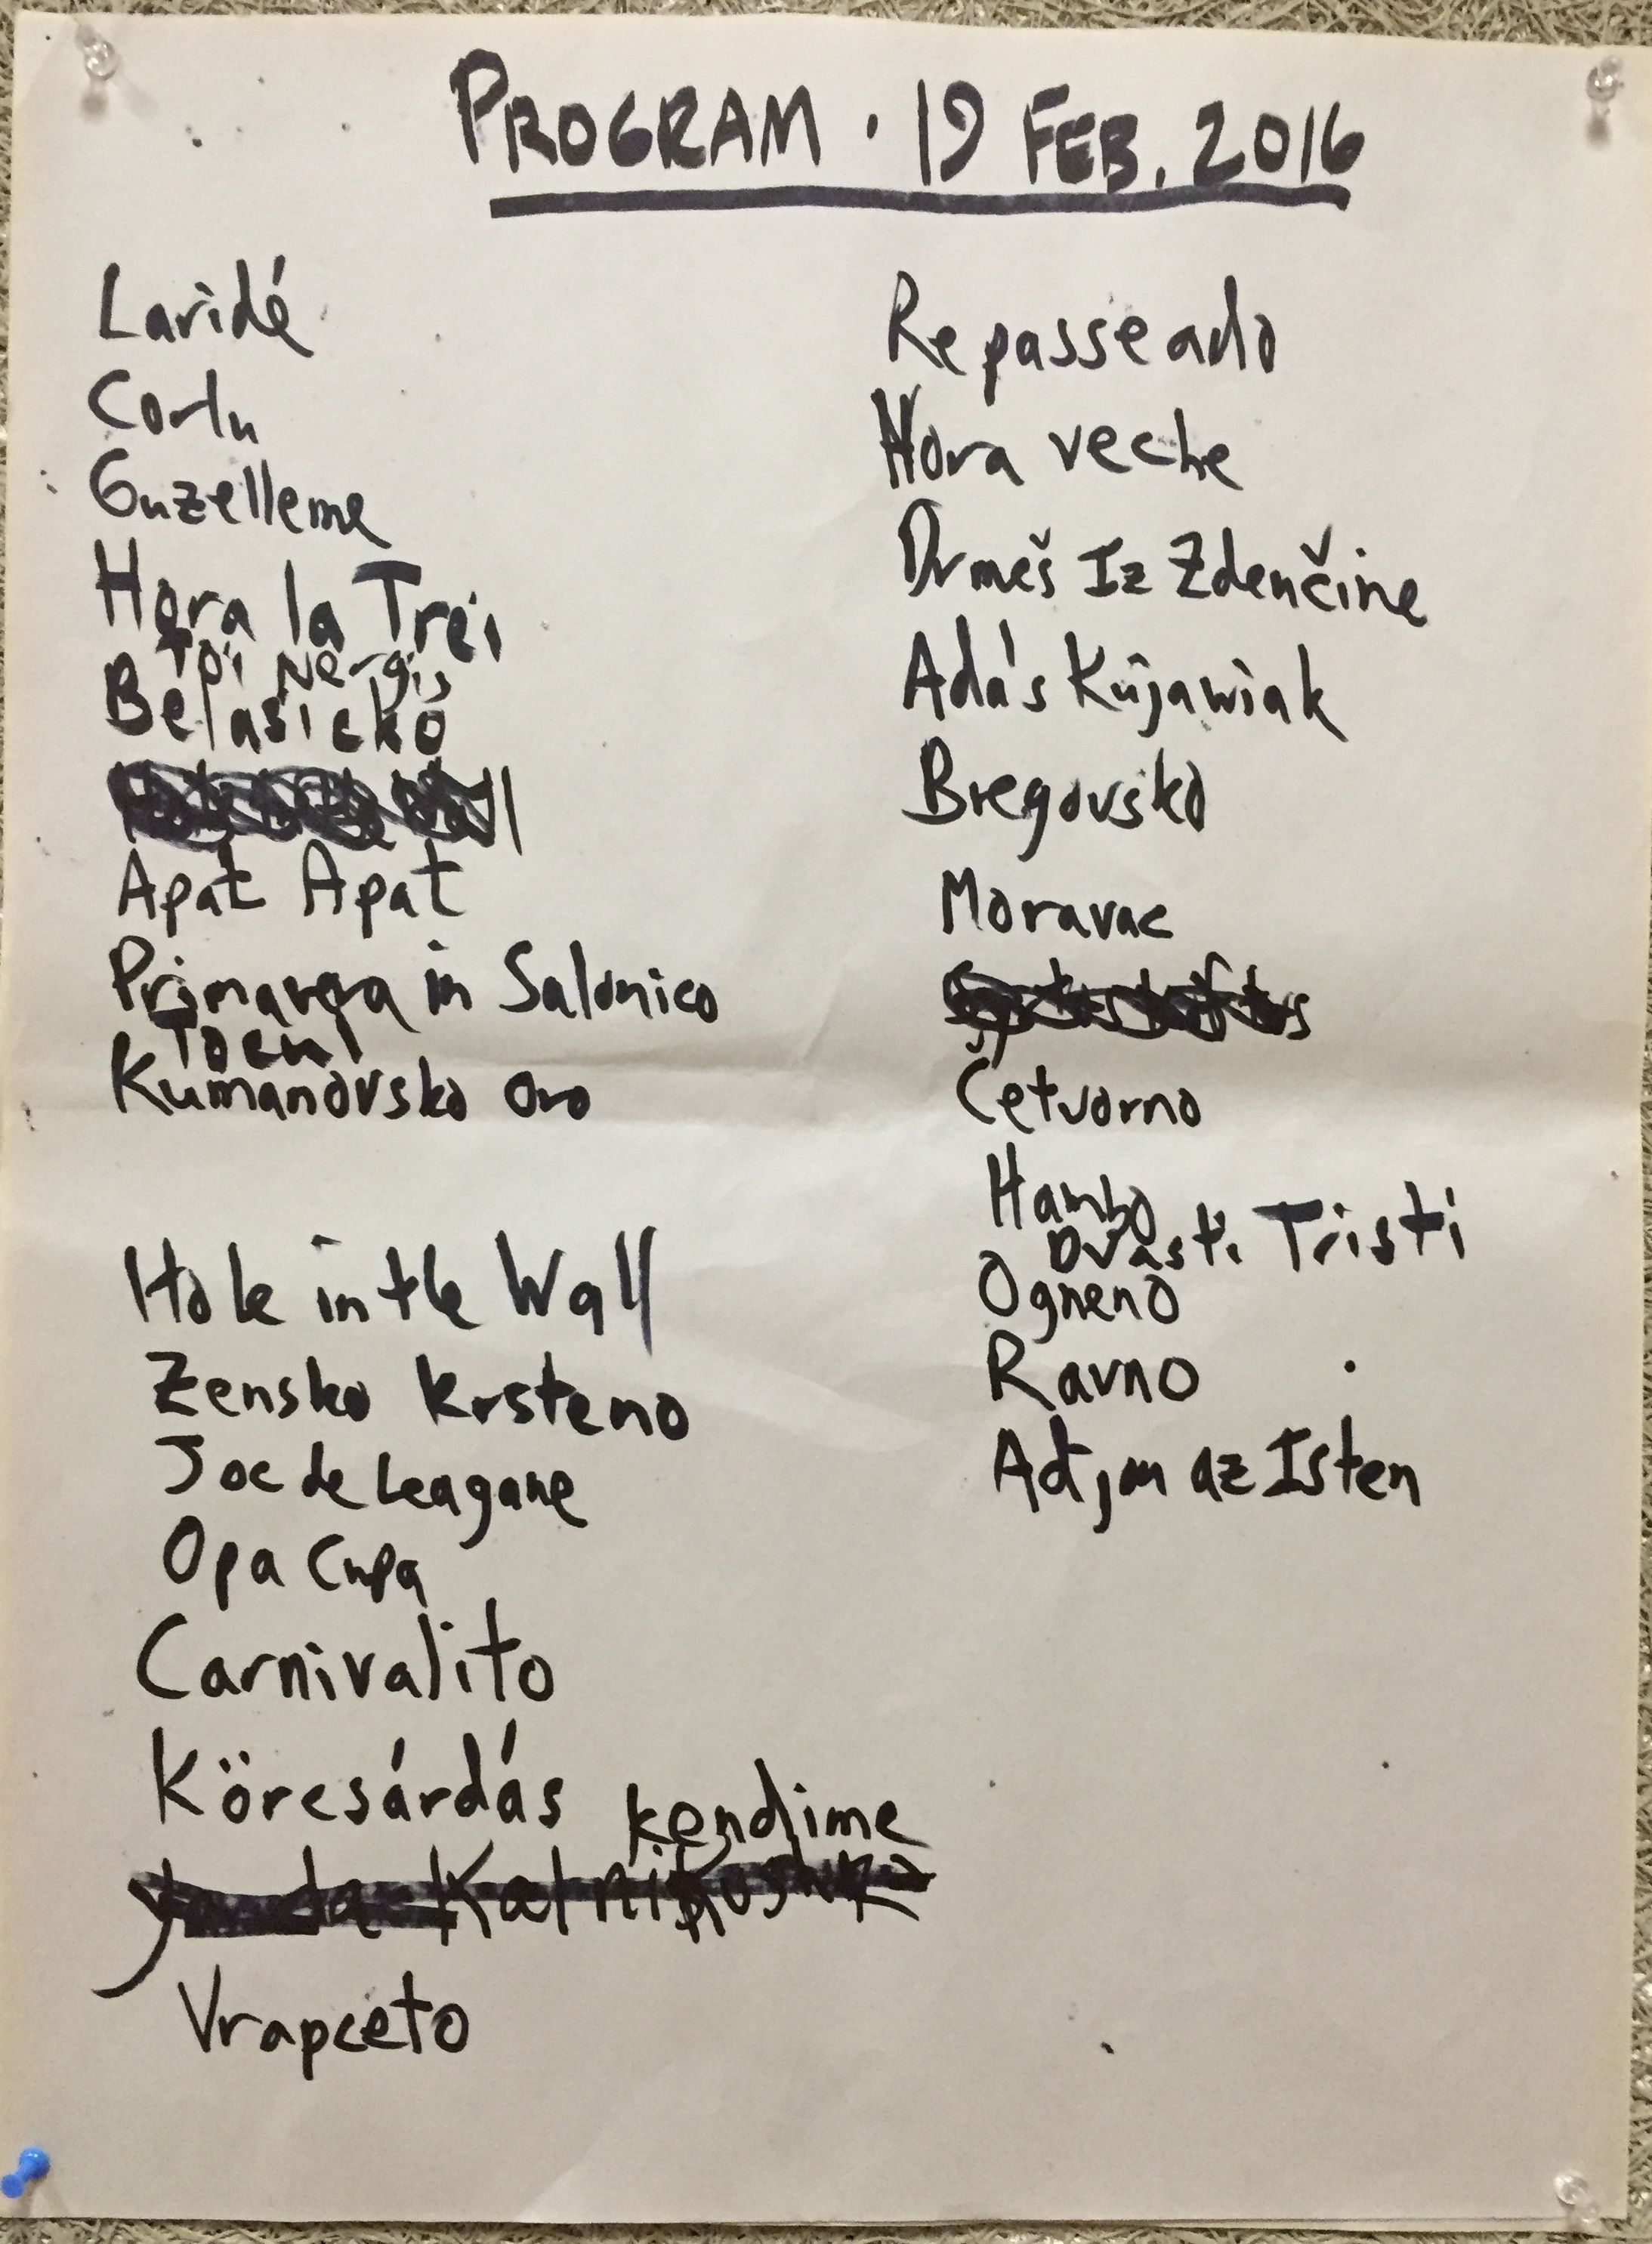 PROGRAM · 19 FEB. 2016
Laridé
Corlu
Guzelleme
Hora la Trei
Topi Nergis
Belasicko
Apat Apat
Primavera in Salonico
Točeni
Kumanovsko Oro
Hole in the Wall
Zensko Krsteno
Joc de Leagane
Opa Cupa
Carnivalito
Körcsárdás
kendime
Vrapceto
Repasseado
Hora veche
Drmeš Iz Zdenčine
Ada's Kujawiak
Bregovsko
Moravac
Cetvorno
Hambo
Dvasti Tristi
Ogneno
Ravno
Adjon az Isten